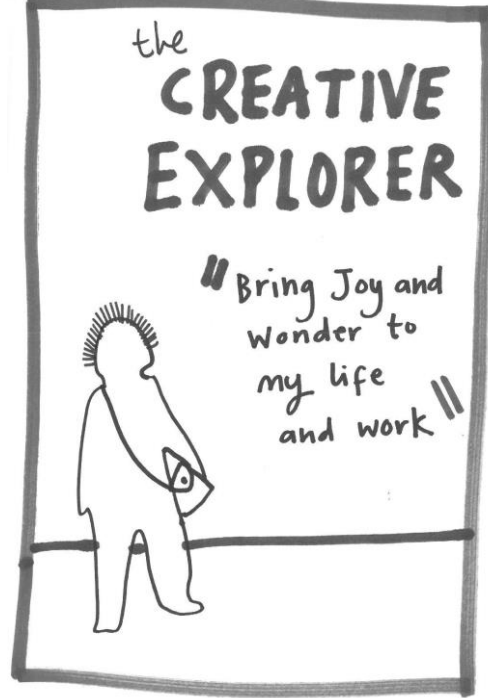 the
CREATIVE
EXPLORER
"Bring Joy and
Wonder to
my life
and work"